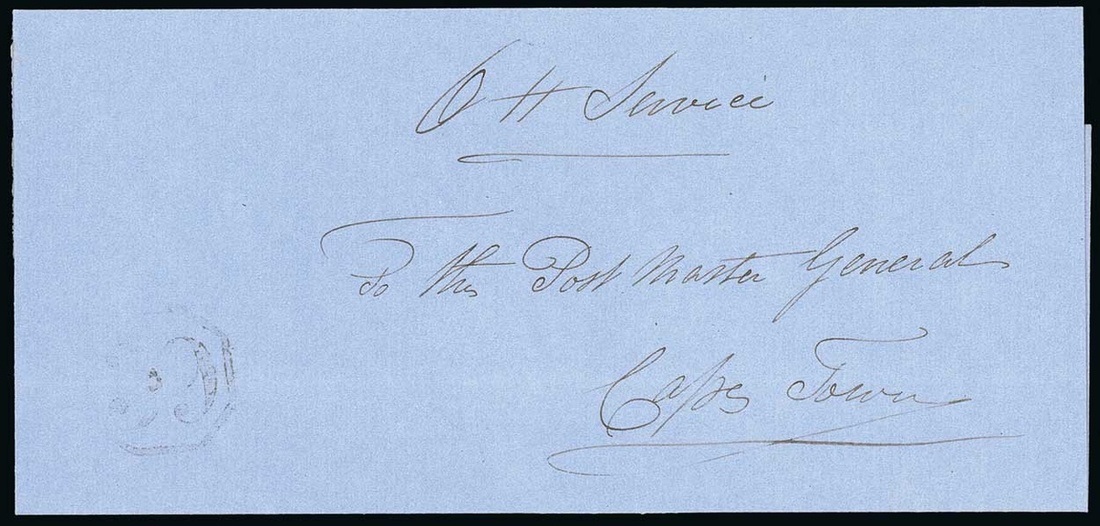 O H Service
To the Post Master General
Cape Town